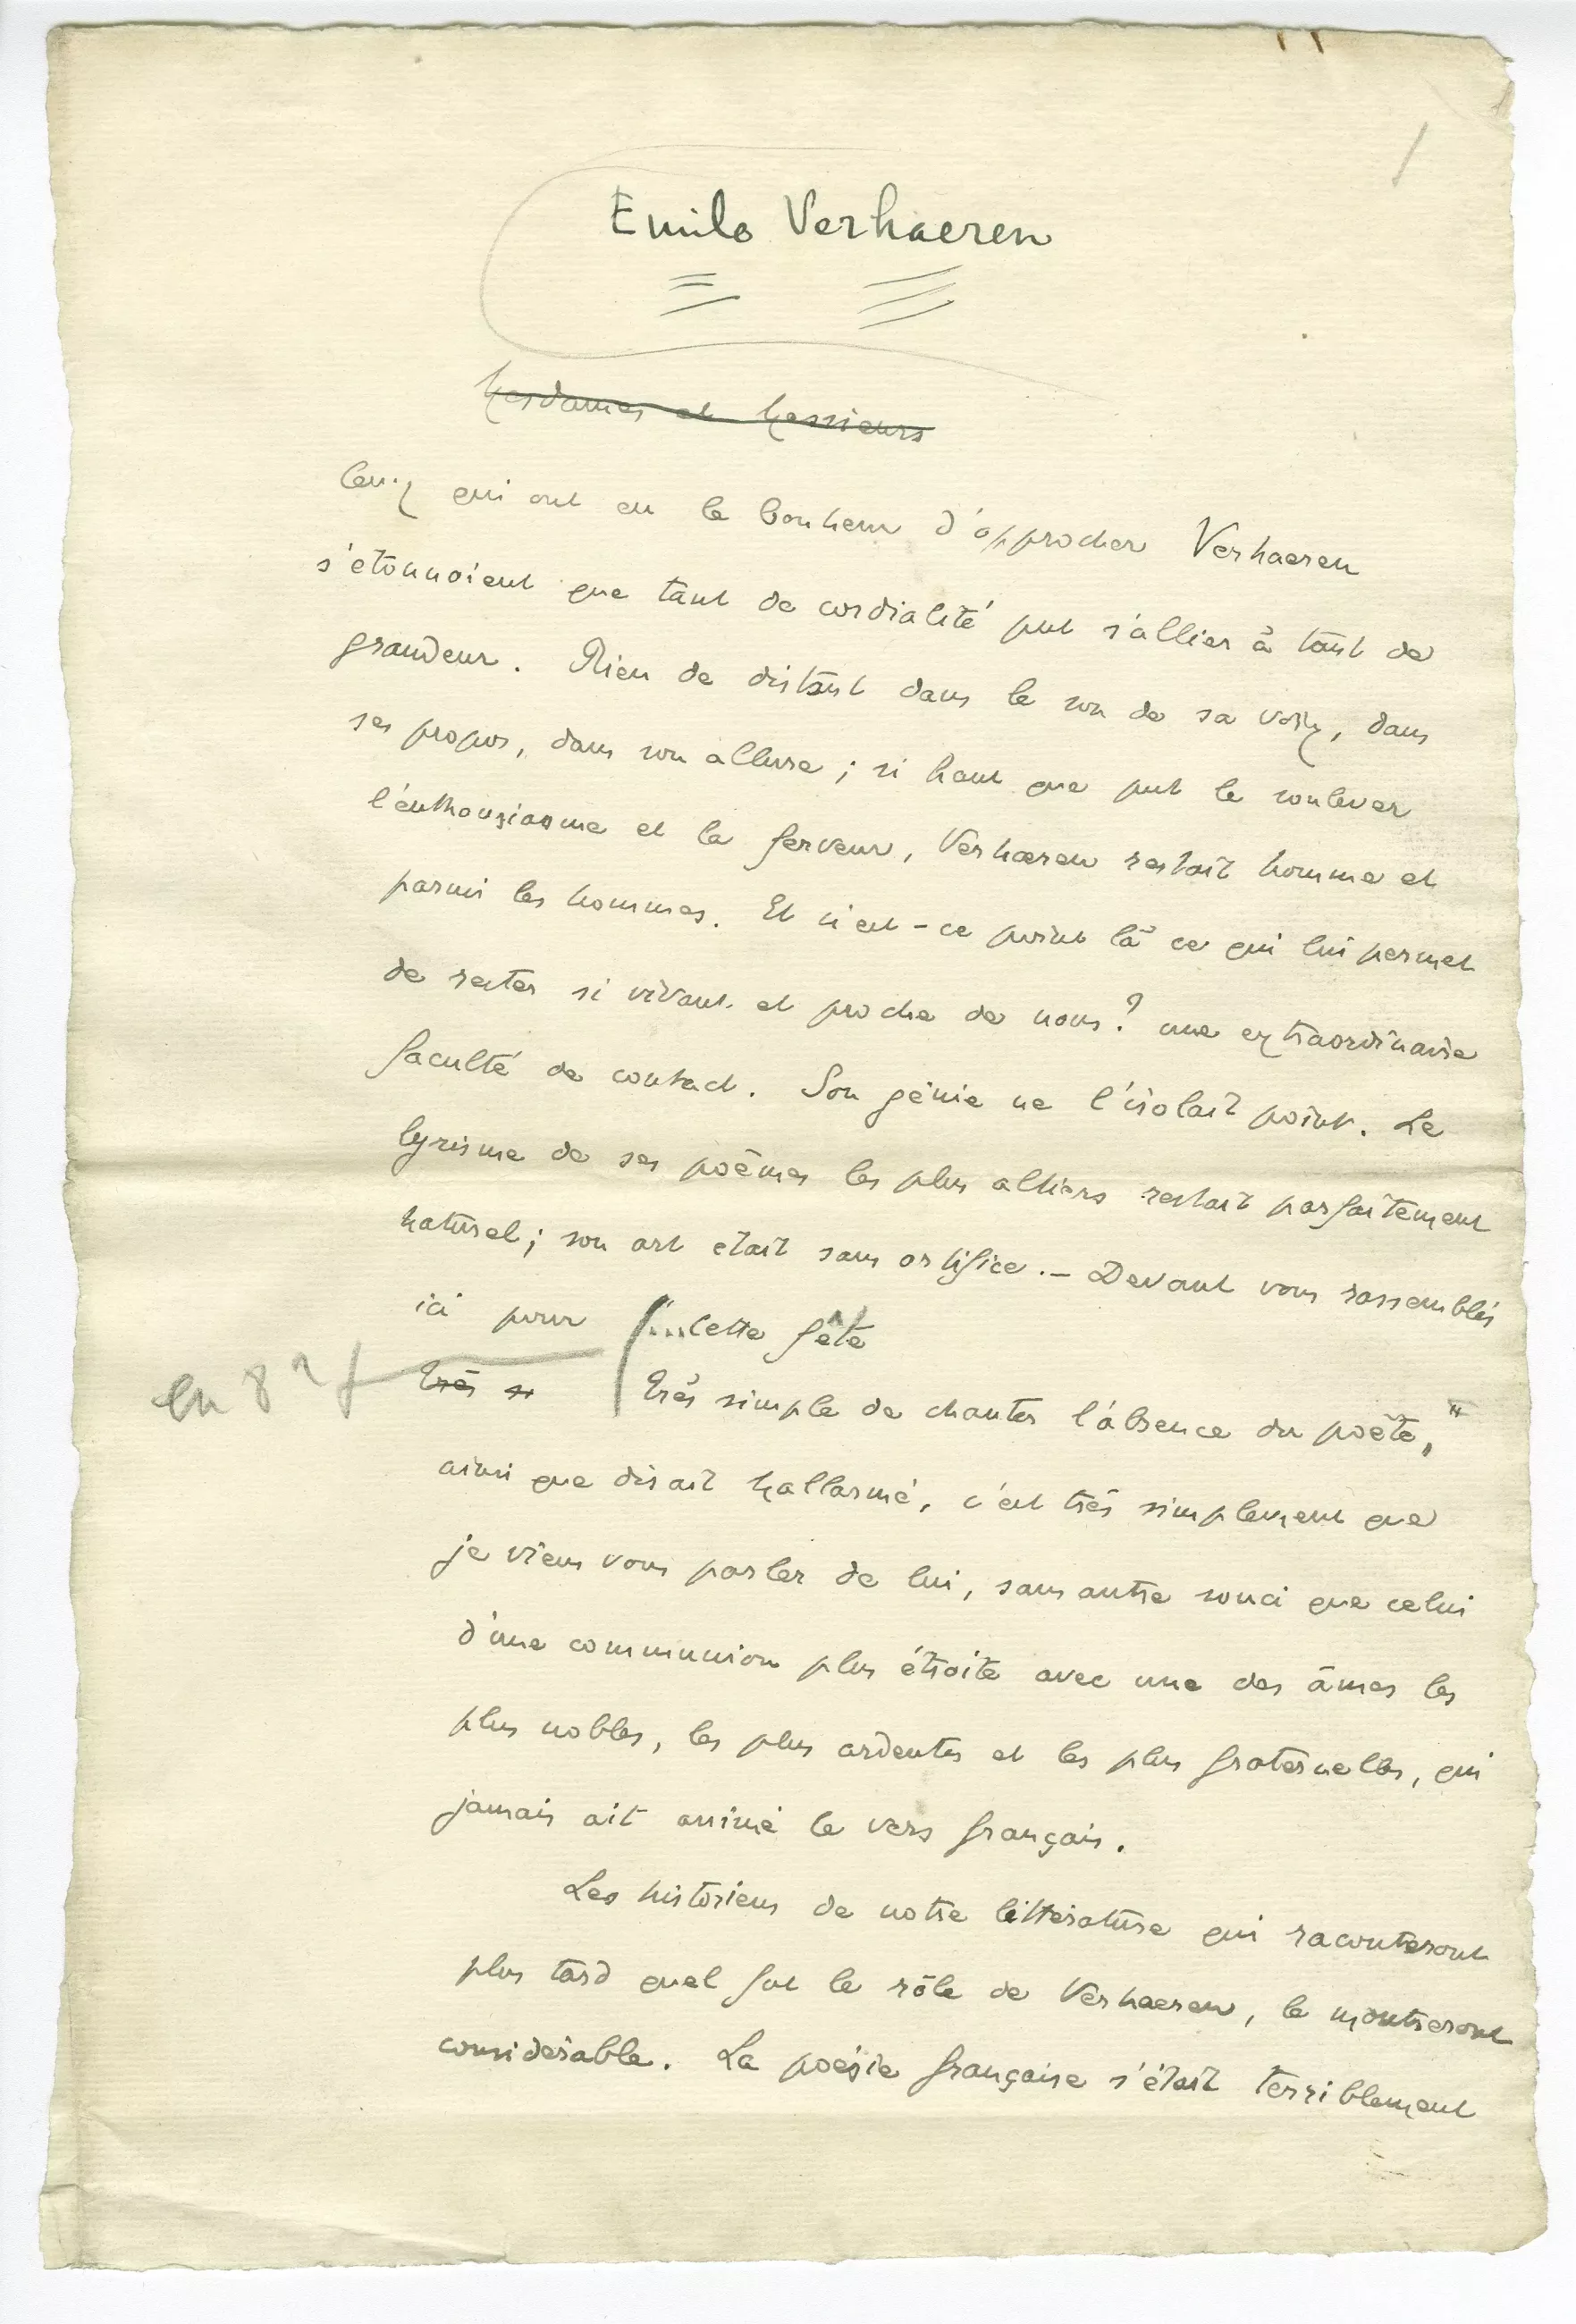 /
Emile Verhaeren
Mesdames et Messieurs
Ceux qui ont eu le bonheur d'approcher Verhaeren
s'étonnoient que tant de cordialité put s'allier à tant de
grandeur. Rien de distant dans le son de sa voix, dans
ses propos, dans son allure ; si haut que put le soulever
l'enthousiasme et la ferveur, Verhaeren restait homme et
parmi les hommes. Et n'est-ce point là ce qui lui permet
de rester si vivant et proche de nous ? une extraordinaire
faculté de contact. Son génie ne l'isolait point. Le
lyrisme de ses poèmes les plus altiers restait parfaitement
naturel ; son art était sans artifice. — Devant vous rassemblés
ici pour "cette fête
en 8
très si très simple de chanter l'absence du poète,"
ainsi que disait Mallarmé, c'est très simplement que
je viens vous parler de lui, sans autre souci que celui
d'une communion plus étroite avec une des âmes les
plus nobles, les plus ardentes et les plus fraternelles, qui
jamais ait animé le vers français.
Les historiens de notre littérature qui raconteront
plus tard quel fut le rôle de Verhaeren, le montreront
considérable. La poésie française s'était terriblement